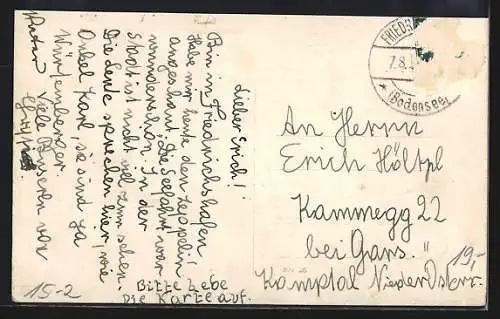 Lieber Erich!
Bin in Friedrichshafen
Habe mir heute den Zeppelin
angeschaut. Die Seefahrt war
wunderschön. In der
Stadt ist nicht viel zum sehen.
Die Leute sprechen hier, wie
Onkel Karl, sie sind ja
Württemberger
Viele Busserln von
Vater
Bitte hebe
Die Karte auf.
FRIEDR
7.8.
(Bodensee)
An Herrn
Erich Höltzl
Kammegg 22
bei Gars."
Kamptal NiederÖsterr.
19,-
15-2